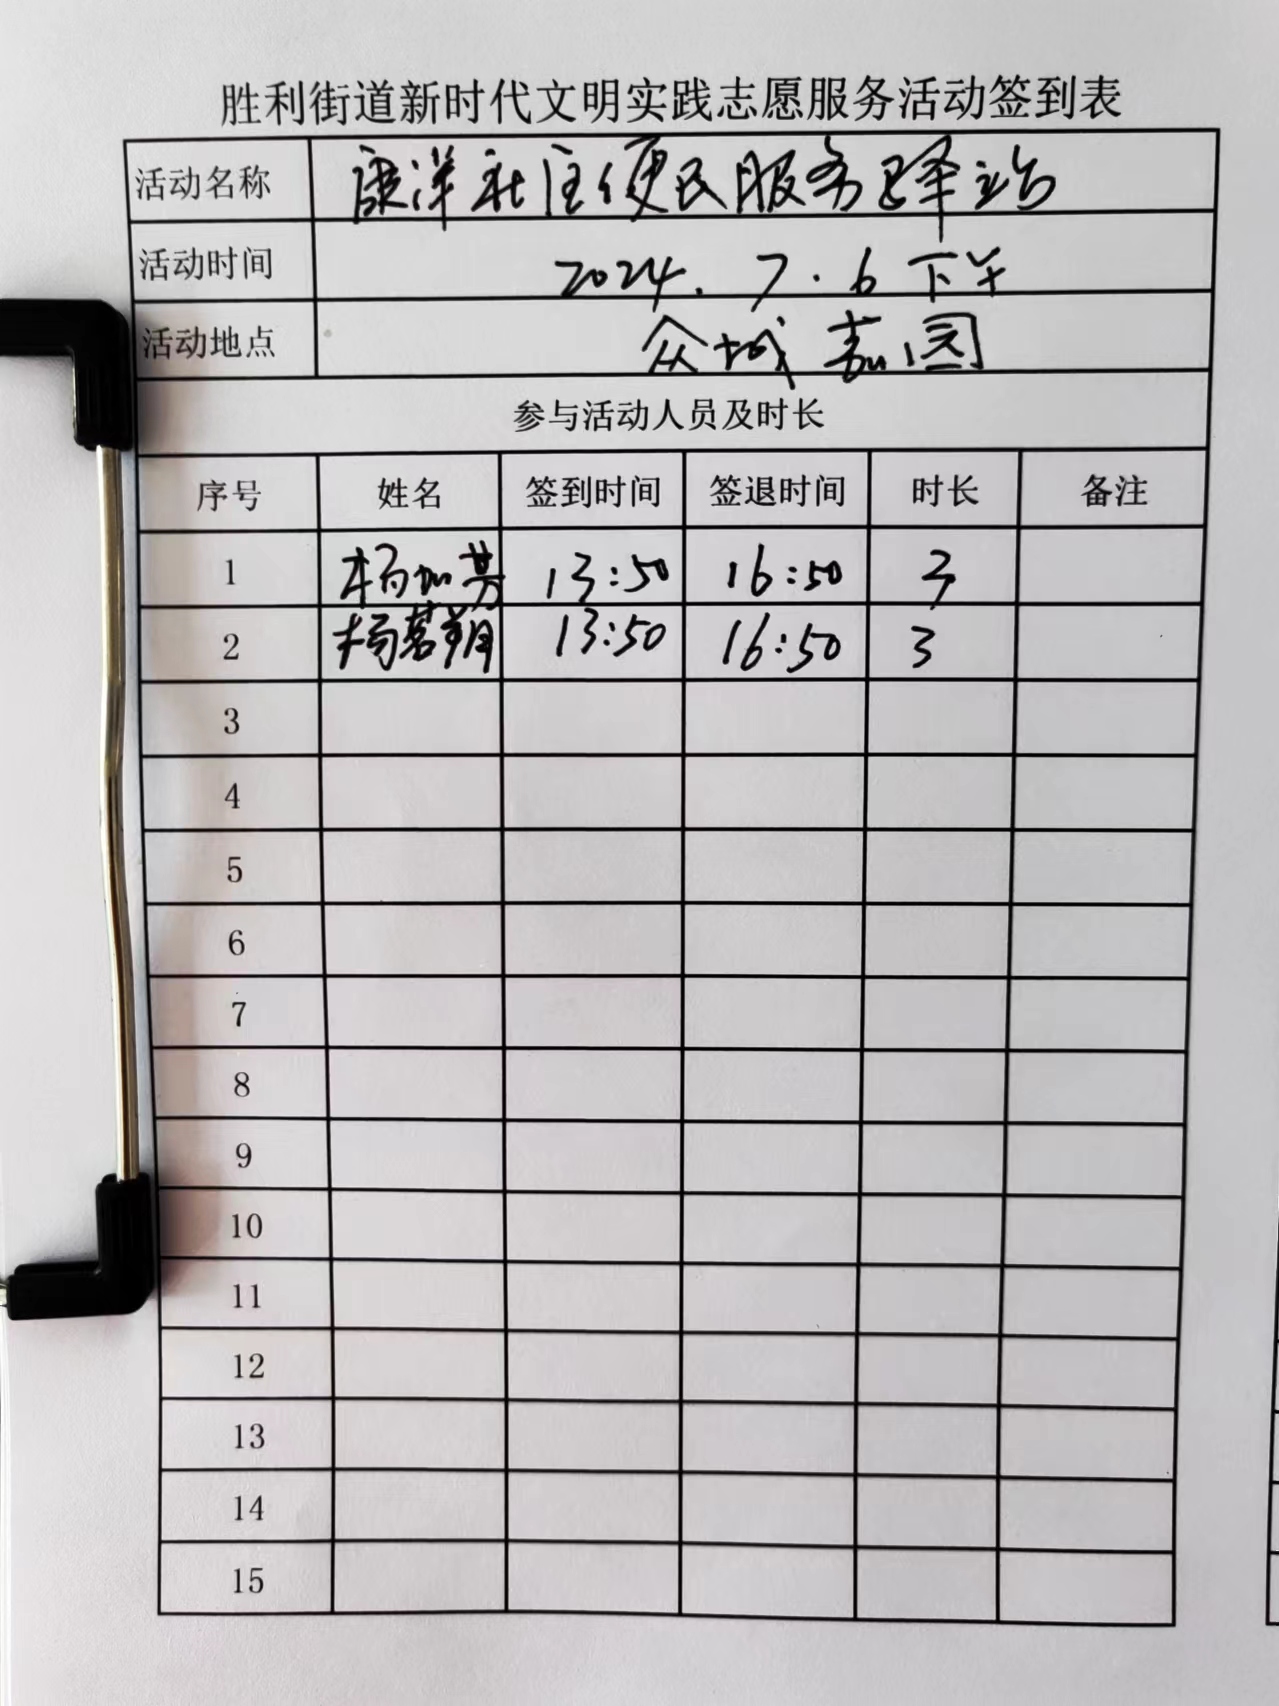 胜利街道新时代文明实践志愿服务活动签到表
活动名称 康洋社区便民服务驿站
活动时间 2024.7.6 下午
活动地点 众城嘉园
参与活动人员及时长
序号 姓名 签到时间 签退时间 时长 备注
1 杨加芳 13:50 16:50 3
2 杨茗朔 13:50 16:50 3
3
4
5
6
7
8
9
10
11
12
13
14
15